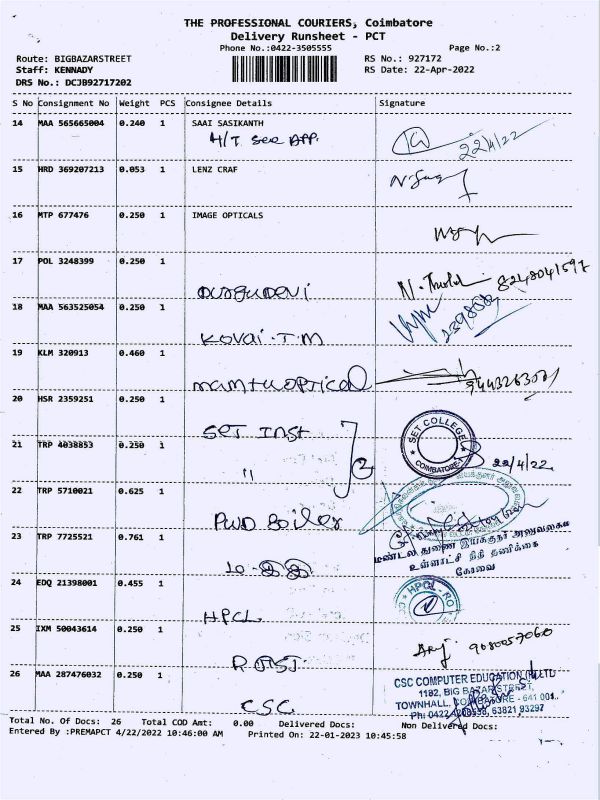 THE PROFESSIONAL COURIERS, Coimbatore
Delivery Runsheet - PCT
Phone No.:0422-3505555 Page No.:2
Route: BIGBAZARSTREET RS No.: 927172
Staff: KENNADY RS Date: 22-Apr-2022
DRS No.: DCJB92717202
S No Consignment No Weight PCS Consignee Details Signature
14 MAA 565665004 0.240 1 SAAI SASIKANTH
H/T See APP. 22/4/22
15 HRD 369207213 0.053 1 LENZ CRAF
16 MTP 677476 0.250 1 IMAGE OPTICALS
17 POL 3248399 0.250 1
Durgudevi 8248041597
18 MAA 563525054 0.250 1
Kovai.T.M
19 KLM 320913 0.460 1
mamtu optical
20 HSR 2359251 0.250 1
SET Inst SET COLLEGE
COIMBATORE
21 TRP 4038853 0.250 1
" 2 22/4/22
22 TRP 5710021 0.625 1
PWD Boiler
23 TRP 7725521 0.761 1
மண்டல துணை இயக்குநர் அலுவலகம்
உள்ளாட்சி நிதி தணிக்கை
கோவை
24 EDQ 21398001 0.455 1
HPCL HPCL - RO
25 IXM 50043614 0.250 1
9080057060
26 MAA 287476032 0.250 1
CSC
CSC COMPUTER EDUCATION (P) LTD
1182, BIG BAZAR STREET,
TOWNHALL, COIMBATORE - 641 001.
Ph: 0422 63821 93297
Total No. Of Docs: 26 Total COD Amt: 0.00 Delivered Docs: Non Delivered Docs:
Entered By :PREMAPCT 4/22/2022 10:46:00 AM Printed On: 22-01-2023 10:45:58